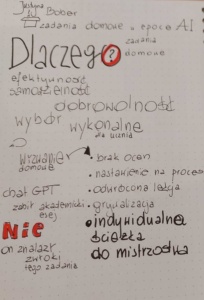 Justyna
Bober
zadania domowe w epoce AI
Dlaczego?
zadania
domowe
efektywność
samodzielność
dobrowolność
wybór
wykonalne
dla ucznia
wyzwanie
domowe
• brak ocen
• nastawienie na proces
• odwrócona lekcja
• grywalizacja
• indywidualna
ścieżka
do mistrzostwa
chat GPT
zabił akademicki
esej
Nie
on znalazł
zwłoki
tego zadania